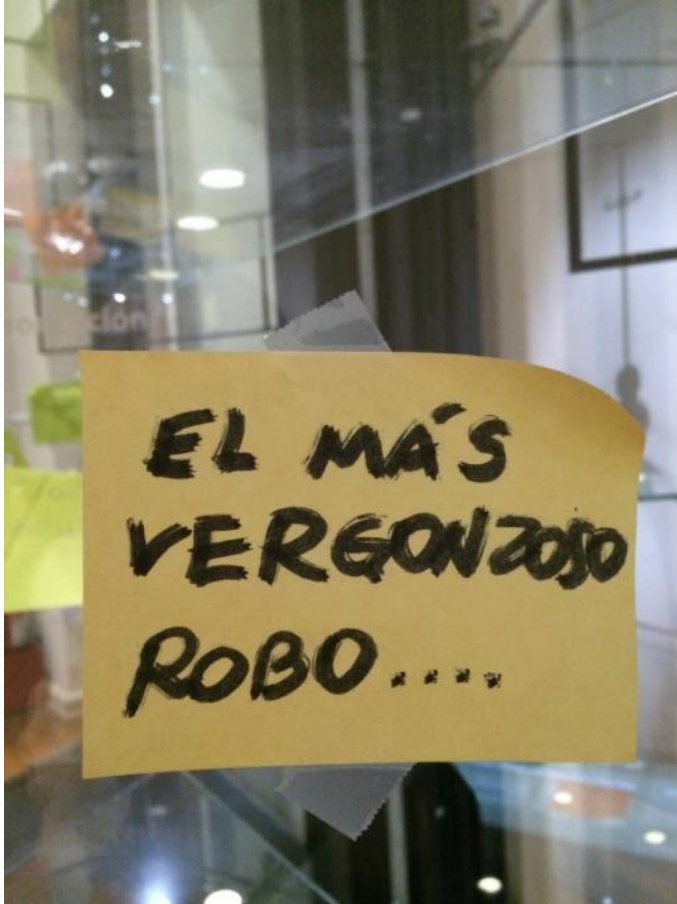 EL MÁS
VERGONZOSO
ROBO....